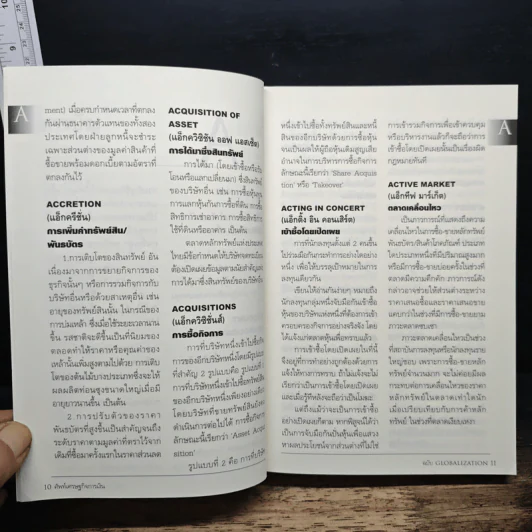 A
ment) เมื่อครบกำหนดเวลาที่ตกลง
กันผ่านธนาคารตัวแทนของทั้งสอง
ประเทศโดยฝ่ายลูกหนี้จะชำระ
เฉพาะส่วนต่างของมูลค่าสินค้าที่
ซื้อขายพร้อมดอกเบี้ยตามอัตราที่
ตกลงกันไว้
ACCRETION
(แอ็กครีชั่น)
การเพิ่มค่าทรัพย์สิน/
พันธบัตร
1.การเติบโตของสินทรัพย์ อัน
เนื่องมาจากการขยายกิจการของ
ธุรกิจนั้นๆ หรือการรวมกิจการกับ
บริษัทอื่นหรือด้วยสาเหตุอื่น เช่น
อายุของทรัพย์สินนั้น ในกรณีของ
การบ่มเหล้า ซึ่งเมื่อใช้ระยะเวลานาน
ขึ้น รสชาติจะดีขึ้นเป็นที่นิยมของ
ตลอดทำให้ราคาหรือคุณค่าของ
เหล้านั้นเพิ่มสูงตามไปด้วย การเติบ
โตของต้นไม้บางประเภทซึ่งจะให้
ผลผลิตก่อนสูงขนาดใหญ่เมื่อมี
อายุยาวนานขึ้น เป็นต้น
2 การปรับตัวของราคา
พันธบัตรที่สูงขึ้นเป็นสำคัญจนถึง
ระดับราคาตามมูลค่าที่ตราไว้จาก
เดิมที่ซื้อมาครั้งแรกในราคาส่วนลด
10 ศัพท์เศรษฐกิจการเงิน
ACQUISITION OF
ASSET
(แอ็กควิซิชั่น ออฟ แอสเซ็ต)
การได้มาซึ่งสินทรัพย์
การได้มา (โดยเช้าซื้อหรือรับ
โอนหรือแลกเปลี่ยนมา) ซึ่งสินทรัพย์
ของบริษัทอื่น เช่น การซื้อหุ้นทุน
การแลกหุ้นกันการซื้อที่ดิน การซื้อ
สิทธิการเช่าอาคาร การซื้อสิทธิการ
ใช้ที่ดินหรืออาคาร เป็นต้น
ตลาดหลักทรัพย์แห่งประเทศ
ไทยมีข้อกำหนดให้บริษัทจดทะเบียน
ต้องเปิดเผยข้อมูลตามนัยสำคัญของ
การได้มาซึ่งทรัพย์สินของบริษัทนั้น
ACQUISITIONS
(แอ็กควิซิชั่นส์)
การซื้อกิจการ
การที่บริษัทหนึ่งเข้าไปซื้อกิจการ
ของอีกบริษัทหนึ่งโดยมีรูปแบบ
ที่สำคัญ 2 รูปแบบคือ รูปแบบที่ 1
คือ การที่บริษัทหนึ่งเข้าไปซื้อทรัพย์สิน
ของอีกบริษัทหนึ่งเพียงอย่างเดียว
โดยบริษัทที่ขายทรัพย์สินยังคง
ดำเนินการต่อไปได้ การซื้อกิจการ
ลักษณะนี้เรียกว่า 'Asset Acqui-
sition'
รูปแบบที่ 2 คือ การที่บริษัท
หนึ่งเข้าไปซื้อทั้งทรัพย์สินและหนี้
สินของอีกบริษัทด้วยการซื้อหุ้น
จนเป็นผลให้ผู้ถือหุ้นเดิมสูญเสีย
อำนาจในการบริหารการซื้อกิจการ
ลักษณะนี้เรียกว่า 'Share Acquisi-
tion' หรือ 'Takeover'
ACTING IN CONCERT
(แอ็กติ้ง อิน คอนเสิร์ต)
เข้าซื้อโดยเปิดเผย
การที่นักลงทุนตั้งแต่ 2 คนขึ้น
ไปร่วมมือกันกระทำการอย่างใดอย่าง
หนึ่ง เพื่อให้บรรลุเป้าหมายในการ
ลงทุนเดียวกัน
เขียนให้อ่านง่ายๆ หมายถึง
นักลงทุนกลุ่มหนึ่งจับมือกันเข้าซื้อ
หุ้นของบริษัทแห่งหนึ่งที่ต้องการเข้า
ครอบครองกิจการอย่างจริงจัง โดย
ได้แจ้งแก่ตลาดหุ้นเพื่อทราบแล้ว
การเข้าซื้อโดยเปิดเผยในที่นี้
จึงอยู่ที่การทำอย่างถูกต้องด้วยการ
แจ้งให้ทางการทราบ ถ้าไม่แจ้งจะไม่
เรียกว่าเป็นการเข้าซื้อโดยเปิดเผย
และเมื่อรู้ทีหลังจะถือว่าเป็นไม่เผย
แต่ถึงแม้ว่าจะเป็นการเข้าซื้อ
อย่างเปิดเผยก็ตาม หากพิสูจน์ได้ว่า
เป็นการจับมือกันปั่นหุ้นเพื่อแสวง
หาผลประโยชน์จากส่วนต่างที่ไม่ใช่
A
การเข้าร่วมกิจการเพื่อเข้าควบคุม
หรือบริหารงานแล้วก็จะถือว่าการ
เข้าซื้อโดยเปิดเผยนั้นเป็นเรื่องผิด
กฎหมายทันที
ACTIVE MARKET
(แอ็กทีฟ มาร์เก็ต)
ตลาดเคลื่อนไหว
เป็นภาวการณ์ที่แสดงถึงความ
เคลื่อนไหวในการซื้อ-ขายหลักทรัพย์
พันธบัตร/สินค้าโภคภัณฑ์ ประเภท
ใดประเภทหนึ่งที่มีปริมาณสูงมาก
หรือมีการซื้อ-ขายบ่อยครั้งในช่วงที่
ตลาดมีความคึกคัก ภาวการณ์ดัง
กล่าวอาจช่วยให้ส่วนต่างระหว่าง
ราคาเสนอซื้อและราคาเสนอขาย
แคบกว่าในช่วงที่มีการซื้อ-ขายยาม
ภาวะตลาดซบเซา
ภาวะตลาดเคลื่อนไหวเป็นช่วง
โอกาสเป็นการลงทุนหรือนักลงทุนราย
ใหญ่ชอบ เพราะการซื้อ-ขายหลัก
ทรัพย์จำนวนมาก จะไม่ค่อยมีผล
กระทบต่อการเคลื่อนไหวของราคา
หลักทรัพย์ในตลาดเท่าใดนัก
เมื่อเปรียบเทียบกับการค้าหลัก
ทรัพย์ ในช่วงที่ตลาดเงียบเหงา
ฉบับ GLOBALIZATION 11